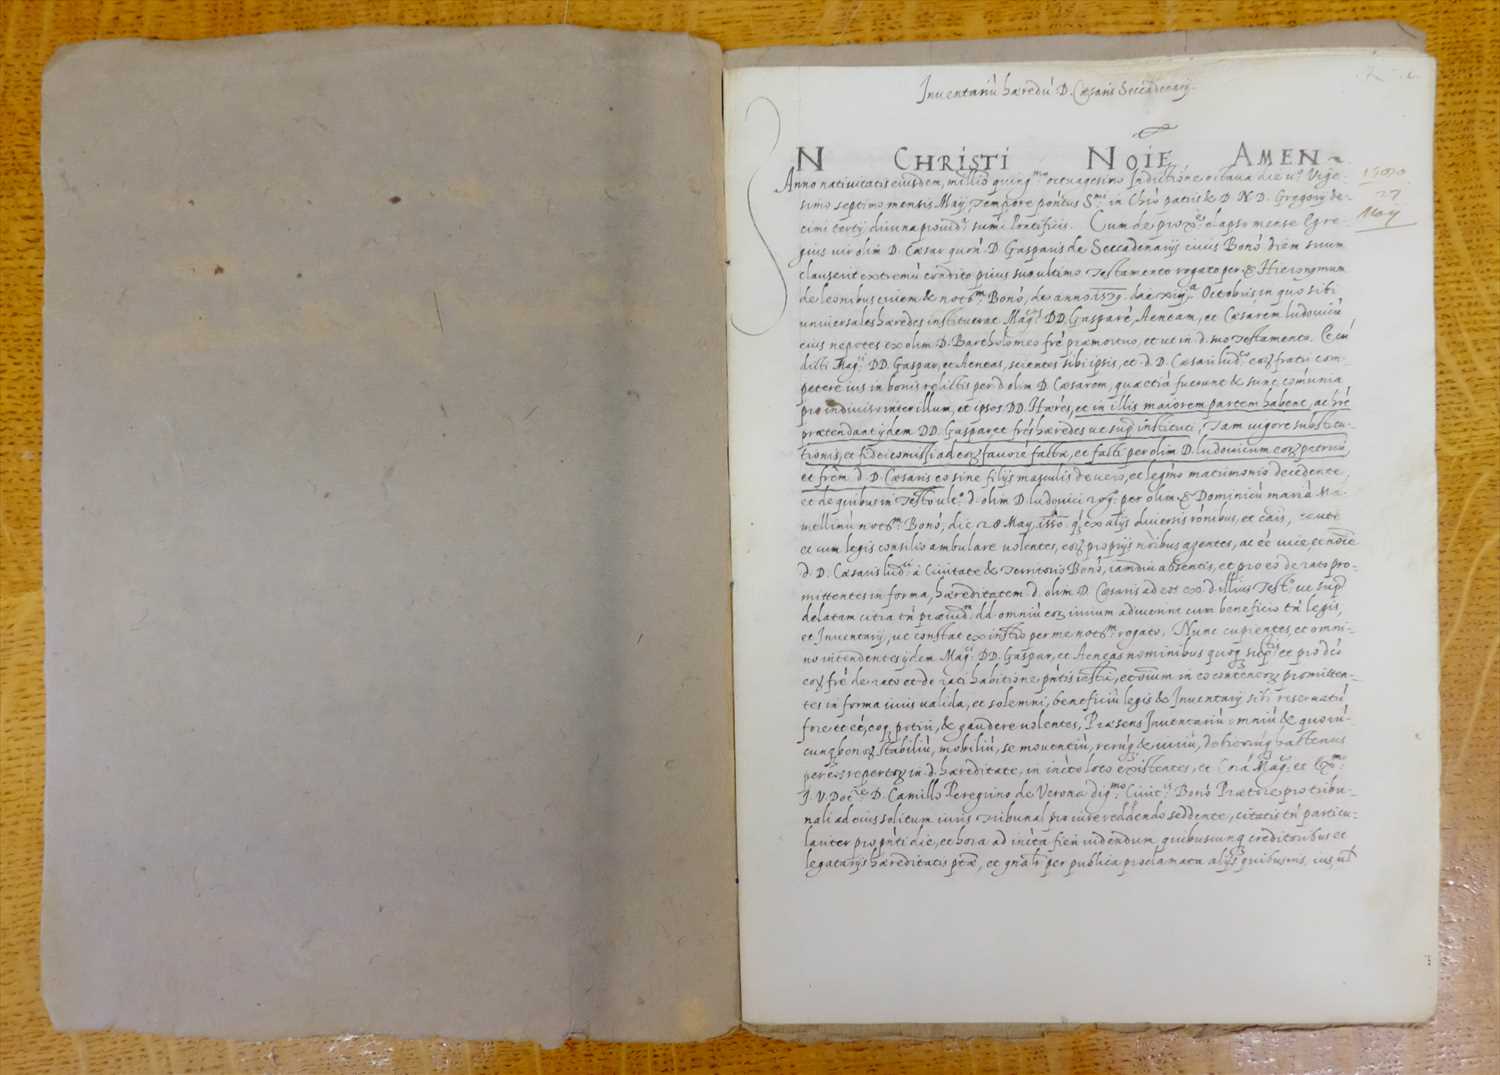 Inventariũ hæredũ D. Cæsaris Seccadenarij.
N CHRISTI NOIE AMEN
Anno nativitatis eiusdem, millio quing.mo octuagesimo Indictione octava die u.o Vige-
simo septimo mensis Maij, Tempore pontus S.mi in Chro patris & D. N. D. Gregorij de-
cimi tertij divina provid.a sumi Pontificis. Cum de prox.e elapso mense Egre-
gius vir olim D. Cæsar quon. D. Gasparis de Seccadenarijs civis Bonõ diem suum
clauserit extremũ condito prius suo ultimo Testamento rogato per & Hieronymum
de leonibus civem & not.m Bonõ, de anno 1579. die xiij.a Octobris in quo sibi
universales hæredes instituerat Mag.cos DD. Gasparẽ, Aeneam, et Cæsarem ludovicũ
eius nepotes ex olim D. Bartholomeo fre præmortuo, et ut in d. suo Testamento. Cũ
dicti Mag.ci DD. Gaspar, et Aeneas, scientes sibi ipsis, et d. D. Cæsari lud.o eoꝝ fratri com-
petere ius in bonis relictis per d. olim D. Cæsarem, quæ etiã fuerunt & sunt comunia
pro indiviso inter illum, et ipsos DD. Hæres, et in illis maiorem partem habent, ac hre
prætendant ijdem DD. Gaspar, et fres hæredes ut sup. instituti, Tam vigore substitu-
tionis, et fideicomissi ad eoꝝ favorẽ factæ, et facti per olim D. ludovicum eoꝝ patruũ,
et frẽm d. D. Cæsaris eo sine filijs masculis de vero, et legmo matrimonio decedente,
et de quibus in Testo ult.o d. olim D. ludovici rog.o per olim & Dominicũ mariã Ma-
mellinũ not.m Bonõ, die 28 Maij 1550. q̃ ex alijs diversis ronibus, et cais, caute
et cum legis consilio ambulare volentes, eoꝝ proprijs noibus agentes, ac et vice, et noie
d. D. Cæsaris lud.ci à Civitate & Territorio Bonõ, iamdiu absentis, et pro eo de rato pro-
mittentes in forma, hæreditatem d. olim D. Cæsaris ad eos ex d. illius Test.o ut sup.
delatam citra tñ præiud.m dd. omniũ eoꝝ iurium adiverint cum beneficio tñ legis,
et Inventarij, ut constat ex instro per me not.m rogato, Nunc cupientes, et omni-
no intendentes ijdem Mag.ci DD. Gaspar, et Aeneas nominibus quoq sup.is et pro d.o
eoꝝ fre de rato et de rati habitione pntis instri, et omnium in eo contentoꝝ promitten-
tes in forma iuris valida, et solemni, beneficiũ legis & Inventarij sibi reservatũ
fore et eẽ, eoq potiri, & gaudere volentes, Præsens Inventariũ omniũ & quorũ-
cunq bonoꝝ stabiliũ, mobiliũ, se moventiũ, rerũq & iuriũ, debitorũq hactenus
per eos repertoꝝ in d. hæreditate, in infrto loco existentes, et Corã Mag.co et Ex.mo
J. V. Doc.re D. Camillo Peregrino de Verona dig.mo Civit.is Bonõ Prætore pro tribu-
nali ad eius solitum iuris Tribunal pro iure reddendo seddente, citatis tñ particu-
lariter pro pnti die, et hora ad infrta fieri videndum quibuscunq creditoribus et
legatarijs hæreditatis ptæ, et gnalr per publica proclamata alijs quibusuis, ius, ul
1580
27
Maij